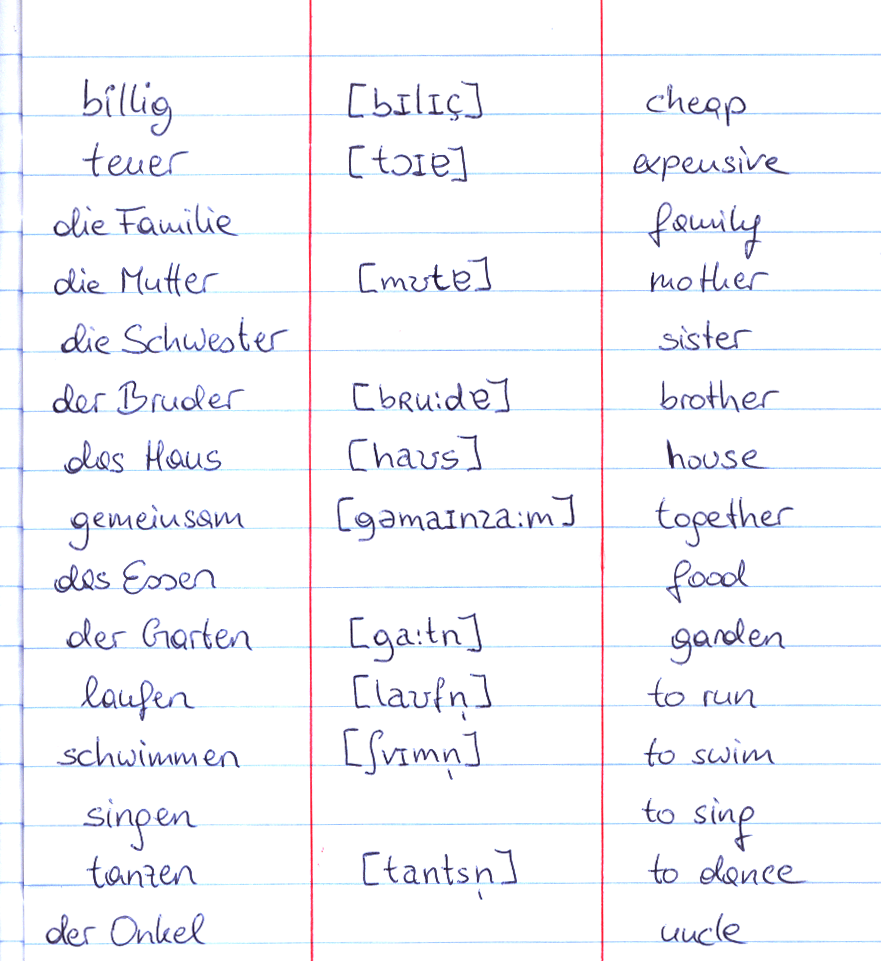 billig [bɪlɪç] cheap
teuer [tɔɪɐ] expensive
die Familie family
die Mutter [mʊtɐ] mother
die Schwester sister
der Bruder [bʀu:dɐ] brother
das Haus [haʊs] house
gemeinsam [gəmaɪnza:m] together
das Essen food
der Garten [ga:tn] garden
laufen [laʊfn̩] to run
schwimmen [ʃvɪmn̩] to swim
singen to sing
tanzen [tantsn̩] to dance
der Onkel uncle